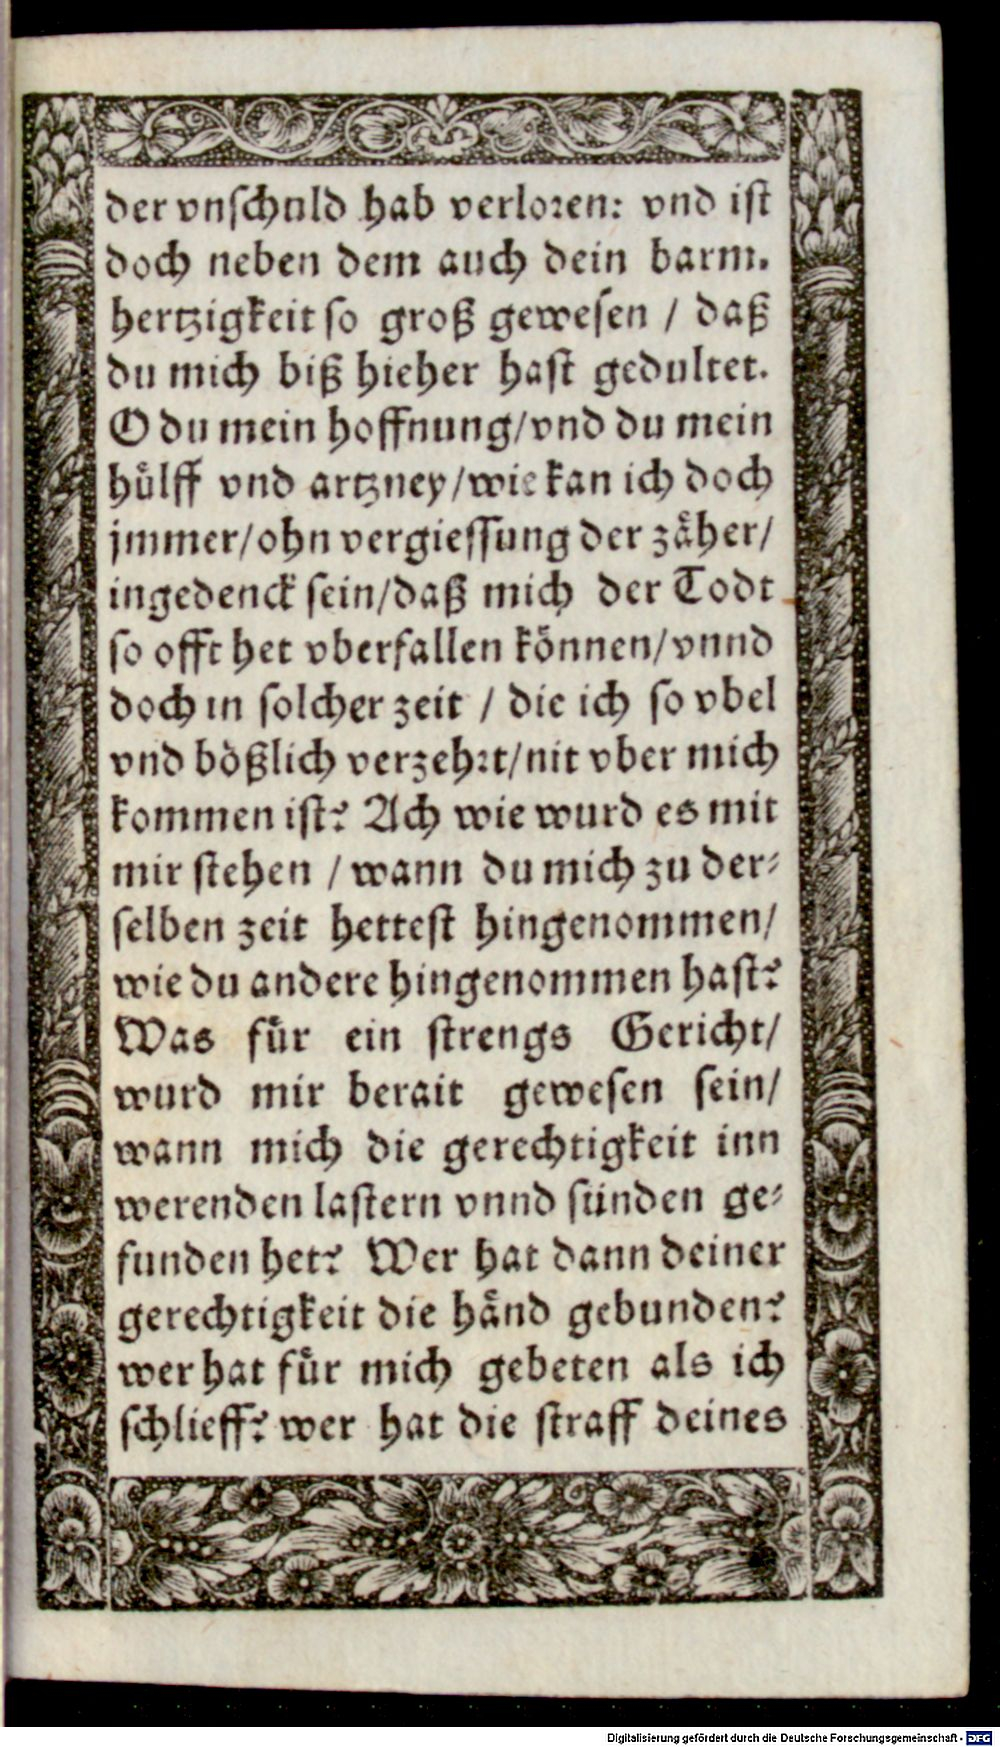 der vnschuld hab verloren: vnd ist
doch neben dem auch dein barm.
hertzigkeit so groß gewesen / daß
du mich biß hieher hast gedultet.
O du mein hoffnung/vnd du mein
huͤlff vnd artzney/wie kan ich doch
jmmer/ohn vergiessung der zaͤher/
ingedenck sein/daß mich der Todt
so offt het vberfallen koͤnnen/vnnd
doch in solcher zeit / die ich so vbel
vnd boͤßlich verzehrt/nit vber mich
kommen ist? Ach wie wurd es mit
mir stehen / wann du mich zu der⸗
selben zeit hettest hingenommen/
wie du andere hingenommen hast?
Was fuͤr ein strengs Gericht/
wurd mir berait gewesen sein/
wann mich die gerechtigkeit inn
werenden lastern vnnd sünden ge⸗
funden het? Wer hat dann deiner
gerechtigkeit die haͤnd gebunden?
wer hat fuͤr mich gebeten als ich
schlieff? wer hat die straff deines
Digitalisierung gefördert durch die Deutsche Forschungsgemeinschaft - DFG